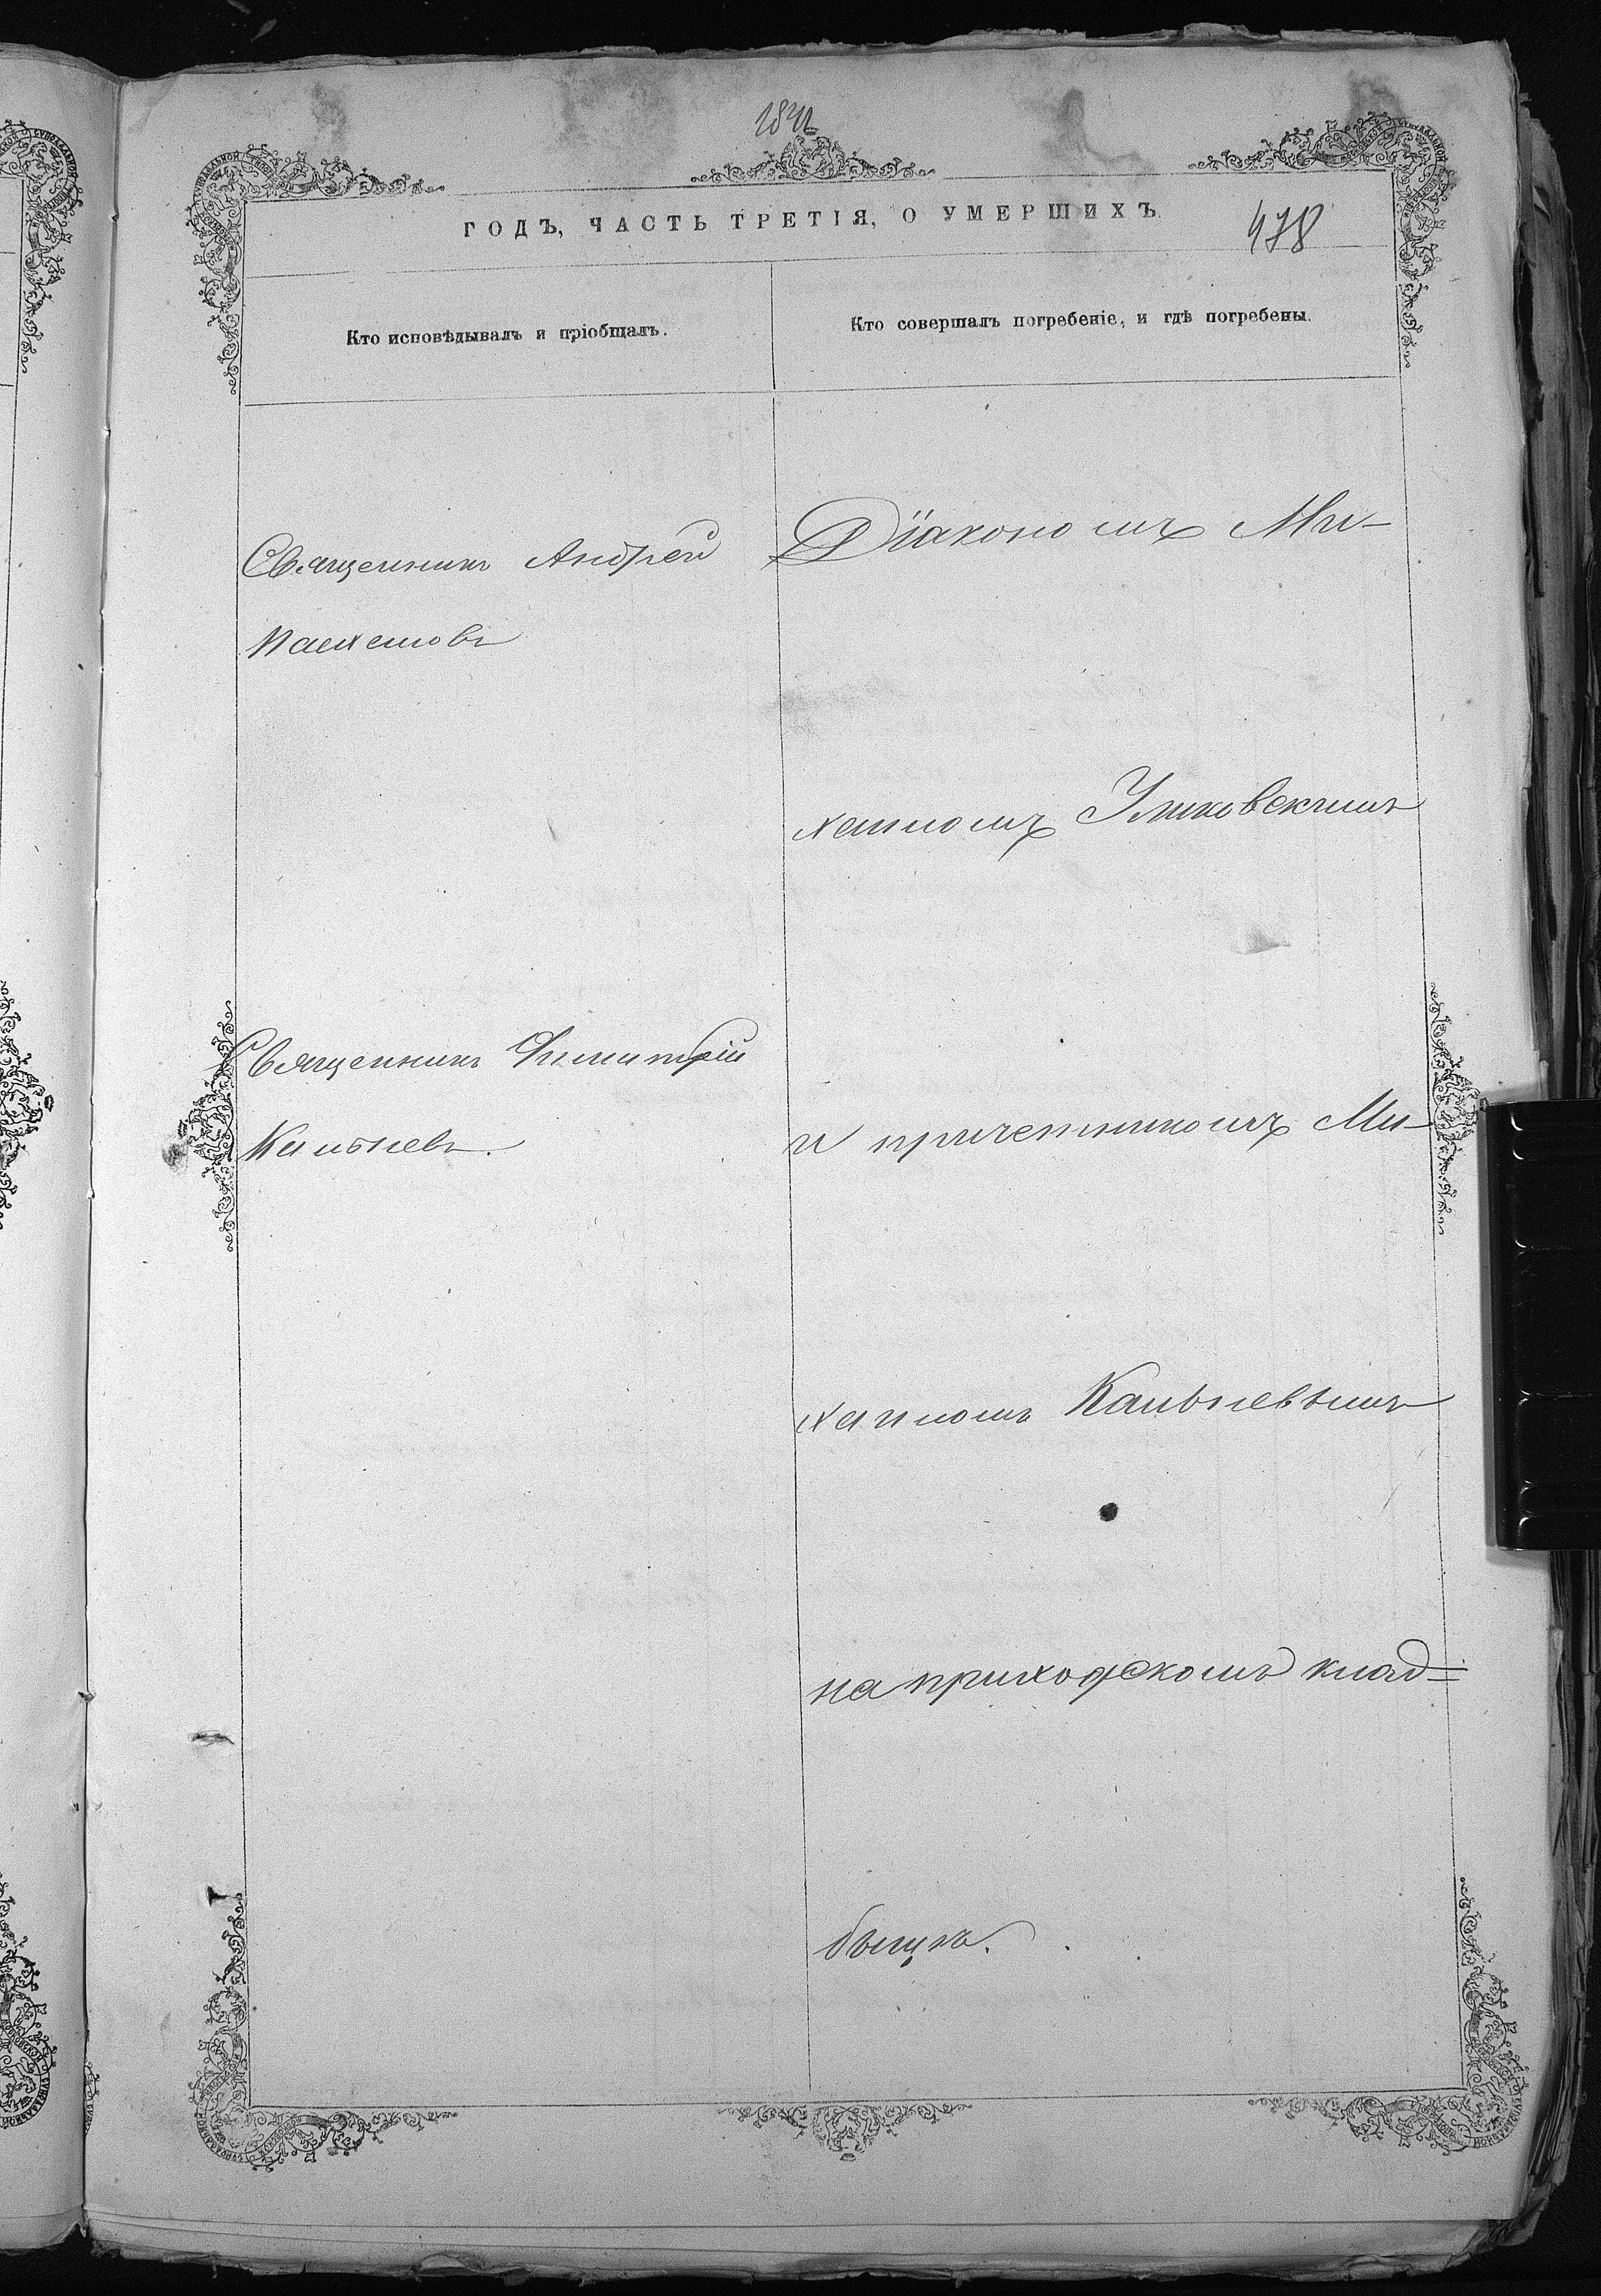 ГОДЪ, ЧАСТЬ ТРЕТІЯ, О УМЕРШИХЪ
478
Кто исповѣдывалъ и пріобщалъ.
Кто совершалъ погребеніе, и гдѣ погребены.
Священникъ Андрей
Священникъ Димитрій
Діакономъ Ми-
хаиломъ
и причетникомъ Ми-
хаиломъ
на приходскомъ клад=
бищѣ.